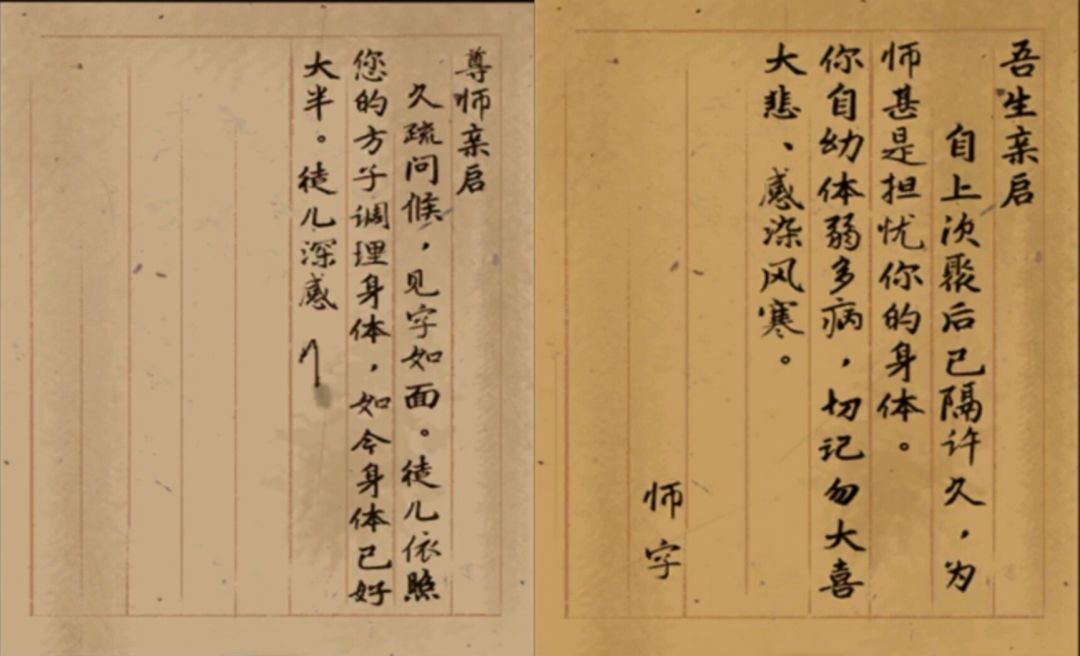 尊师亲启
久疏问候，见字如面。徒儿依照
您的方子调理身体，如今身体已好
大半。徒儿深感
吾生亲启
自上次聚后已隔许久，为
师甚是担忧你的身体。
你自幼体弱多病，切记勿大喜
大悲、感染风寒。
师字